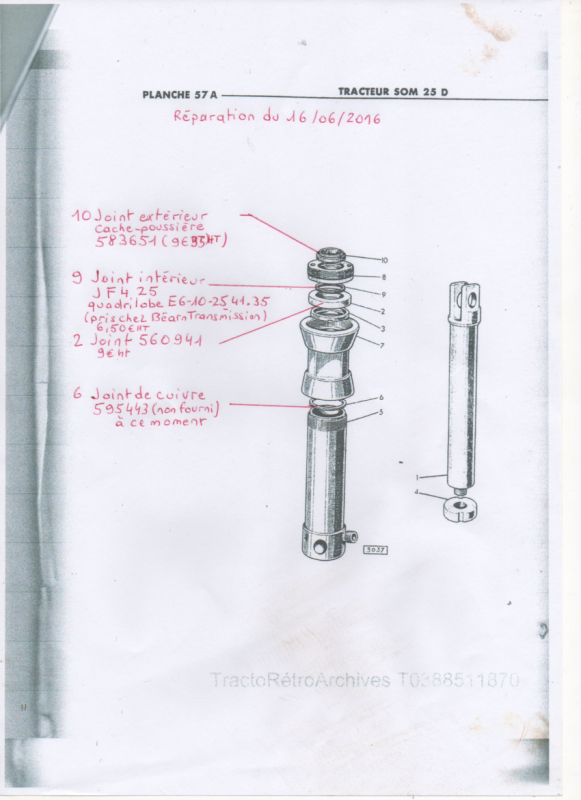 PLANCHE 57 A
TRACTEUR SOM 25 D
Réparation du 16/06/2016
10 Joint extérieur
cache-poussière
583651 (9€35HT)
9 Joint intérieur
JF4 25
quadrilobe E6-10-2541.35
(pris chez Béarn Transmission)
6,50€ HT
2 Joint 560941
9€ HT
6 Joint de cuivre
595443 (non fourni)
à ce moment
10
8
9
2
3
7
6
5
1
4
5027
TractoRétroArchives T0388511870